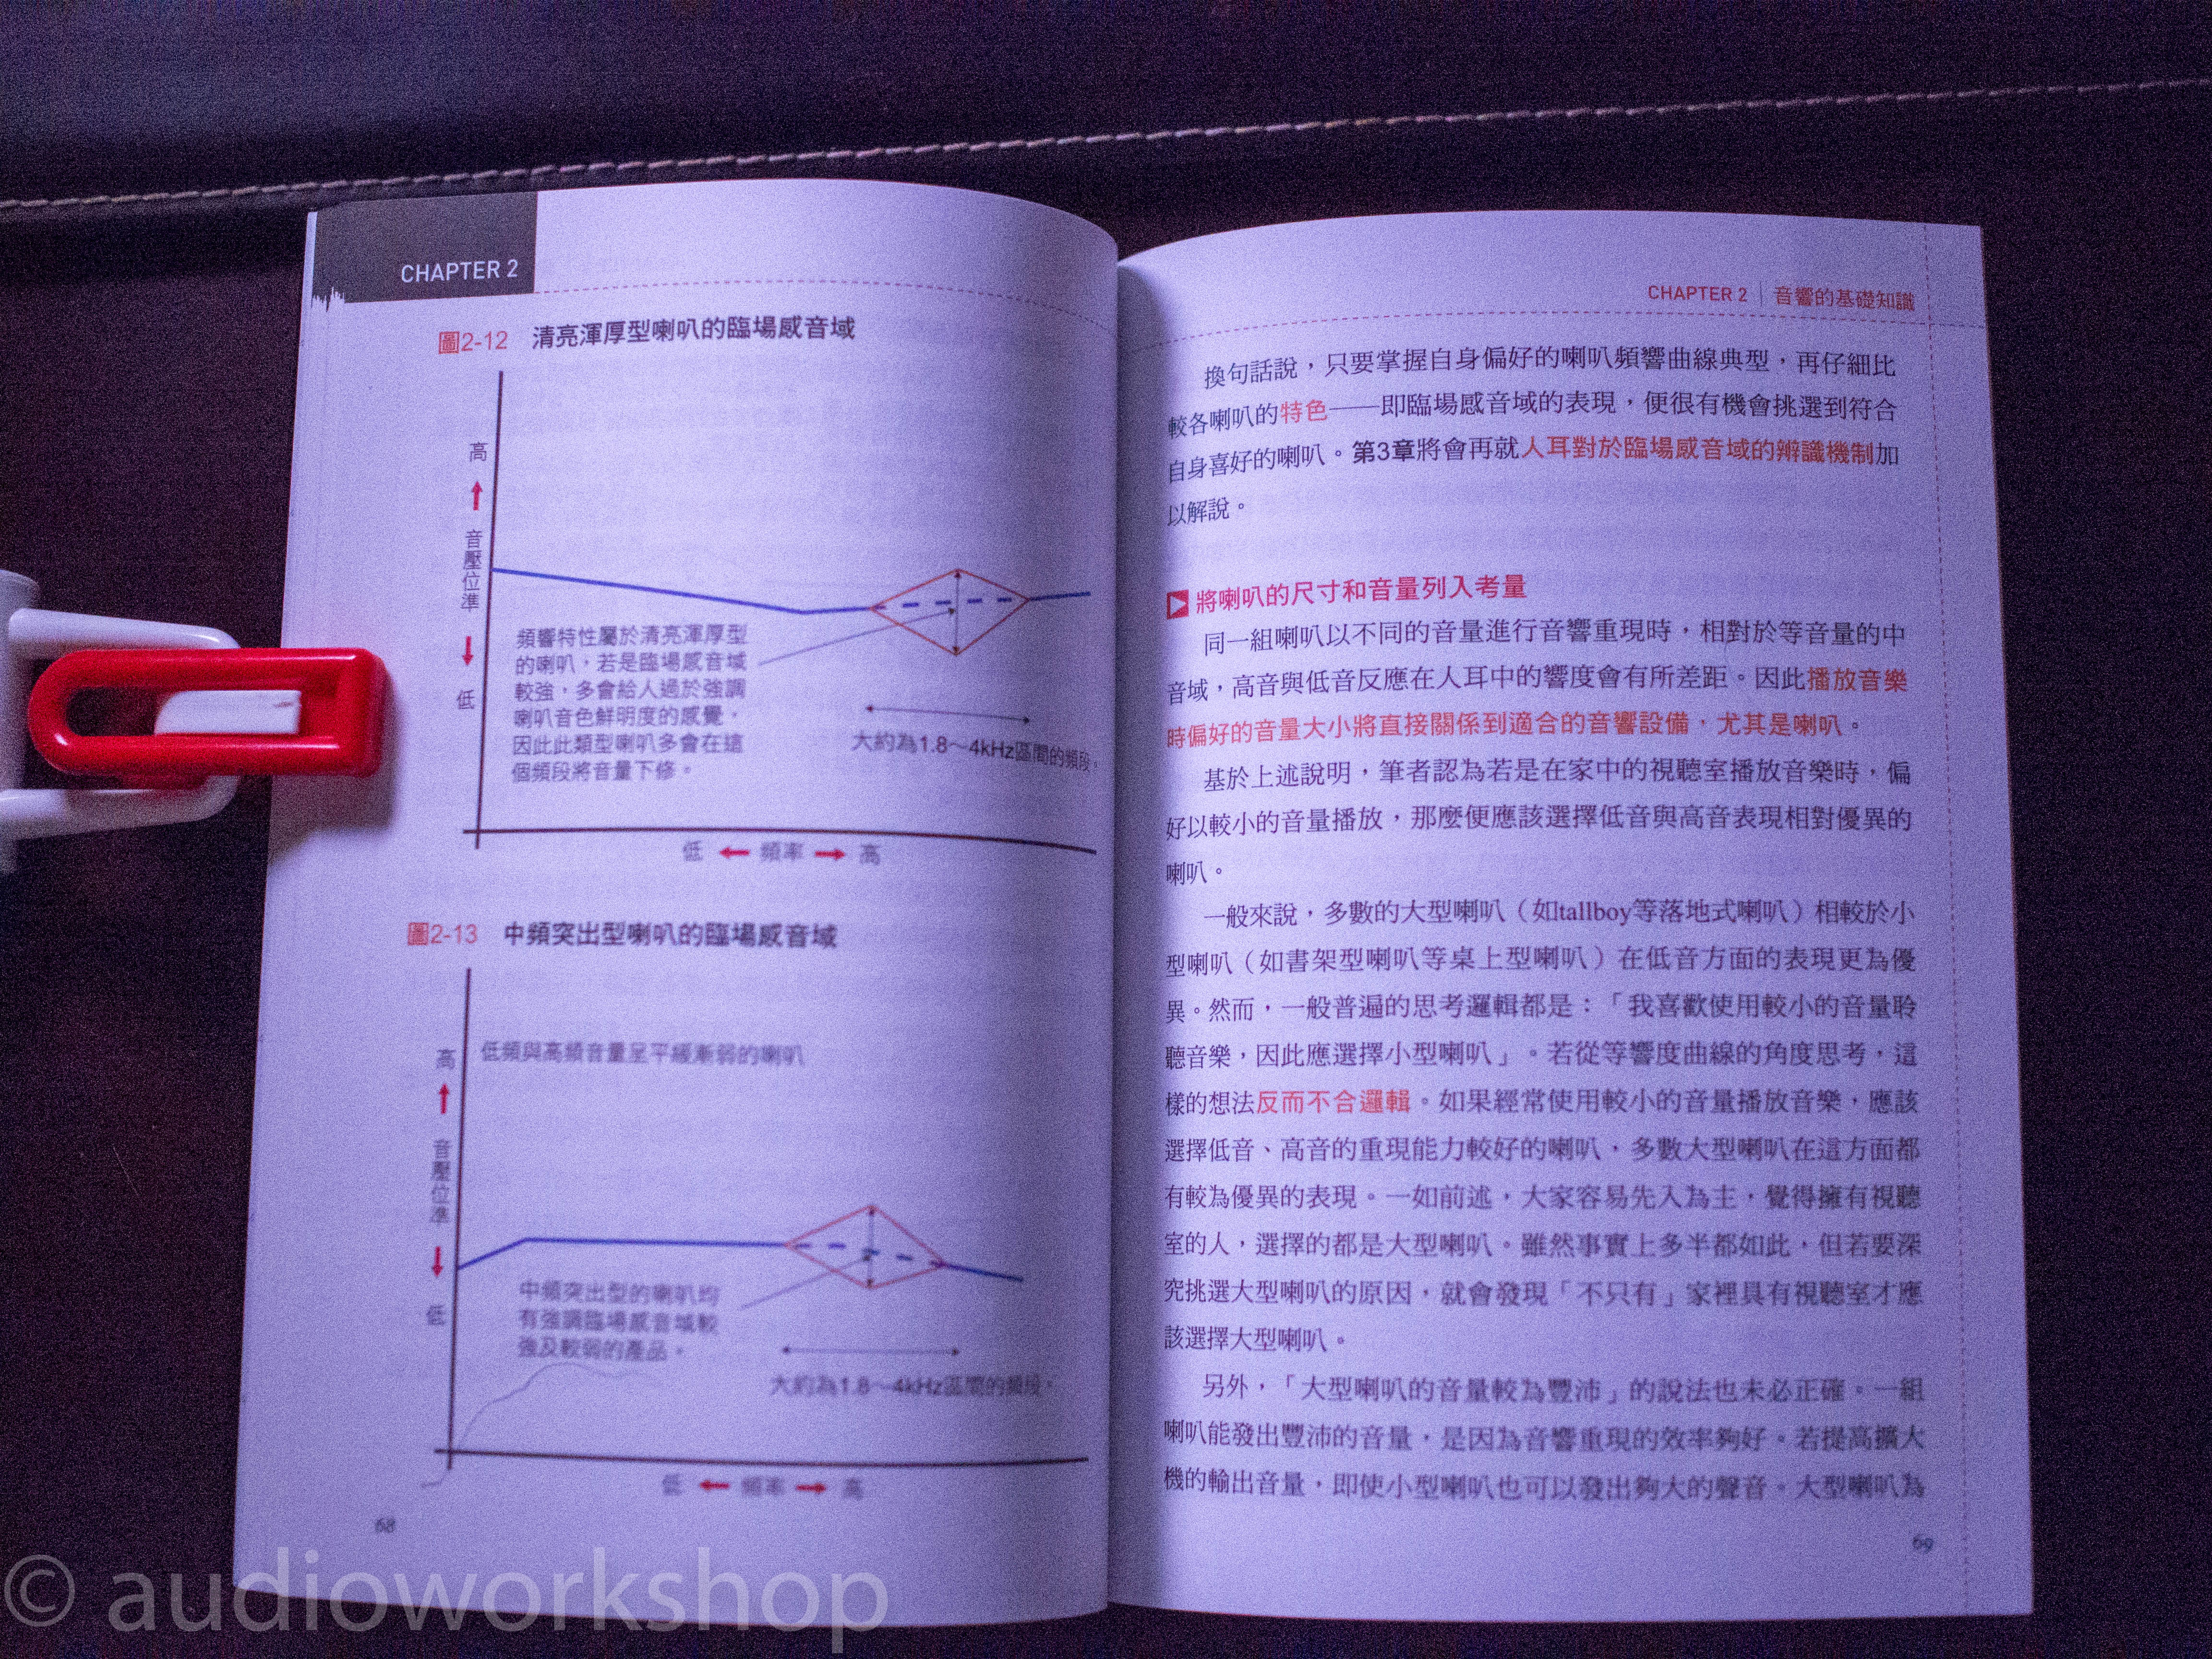 CHAPTER 2
圖2-12 清亮渾厚型喇叭的臨場感音域
高
音壓位準
低
頻響特性屬於清亮渾厚型
的喇叭，若是臨場感音域
較強，多會給人過於強調
喇叭音色鮮明度的感覺，
因此此類型喇叭多會在這
個頻段將音量下修。
大約為1.8～4kHz區間的頻段。
低 頻率 高
圖2-13 中頻突出型喇叭的臨場感音域
高
音壓位準
低
低頻與高頻音量呈平緩漸弱的喇叭
中頻突出型的喇叭均
有強調臨場感音域較
強及較弱的產品。
大約為1.8～4kHz區間的頻段。
低 頻率 高
68
CHAPTER 2 | 音響的基礎知識
換句話說，只要掌握自身偏好的喇叭頻響曲線典型，再仔細比
較各喇叭的特色——即臨場感音域的表現，便很有機會挑選到符合
自身喜好的喇叭。第3章將會再就人耳對於臨場感音域的辨識機制加
以解說。
將喇叭的尺寸和音量列入考量
同一組喇叭以不同的音量進行音響重現時，相對於等音量的中
音域，高音與低音反應在人耳中的響度會有所差距。因此播放音樂
時偏好的音量大小將直接關係到適合的音響設備，尤其是喇叭。
基於上述說明，筆者認為若是在家中的視聽室播放音樂時，偏
好以較小的音量播放，那麼便應該選擇低音與高音表現相對優異的
喇叭。
一般來說，多數的大型喇叭（如tallboy等落地式喇叭）相較於小
型喇叭（如書架型喇叭等桌上型喇叭）在低音方面的表現更為優
異。然而，一般普遍的思考邏輯都是：「我喜歡使用較小的音量聆
聽音樂，因此應選擇小型喇叭」。若從等響度曲線的角度思考，這
樣的想法反而不合邏輯。如果經常使用較小的音量播放音樂，應該
選擇低音、高音的重現能力較好的喇叭，多數大型喇叭在這方面都
有較為優異的表現。一如前述，大家容易先入為主，覺得擁有視聽
室的人，選擇的都是大型喇叭。雖然事實上多半都如此，但若要深
究挑選大型喇叭的原因，就會發現「不只有」家裡具有視聽室才應
該選擇大型喇叭。
另外，「大型喇叭的音量較為豐沛」的說法也未必正確。一組
喇叭能發出豐沛的音量，是因為音響重現的效率夠好。若提高擴大
機的輸出音量，即使小型喇叭也可以發出夠大的聲音。大型喇叭為
69
© audioworkshop